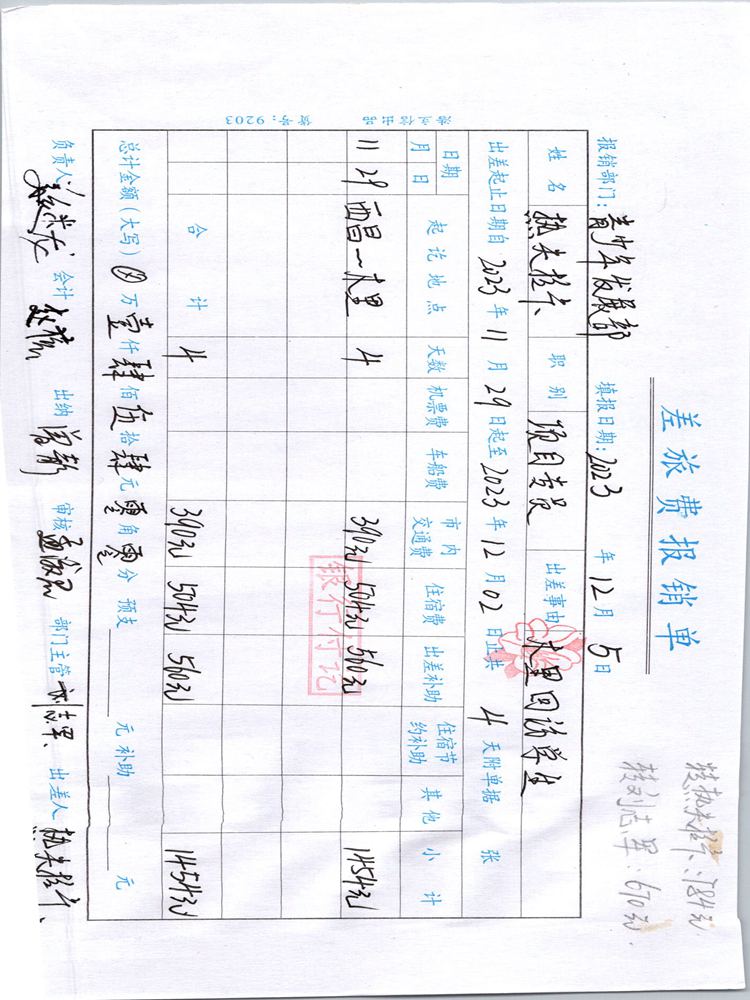 差旅费报销单
报销部门：青少年发展部 填报日期：2023 年 12 月 5 日
姓名 热夫拉卡 职别 项目专员 出差事由 木里回访学生
出差起止日期自 2023 年 11 月 29 日起至 2023 年 12 月 02 日止共 4 天附单据 张
日期 起讫地点 天数 机票费 车船费 市内交通费 住宿费 出差补助 住宿节约补助 其他 小计
月 日
11 29 西昌—木里 4 390元 504元 560元 1454元
银行付讫
合计 4 390元 504元 560元 1454元
总计金额（大写）⊗万壹仟肆佰伍拾肆元零角零分 预支 元 补助 元
负责人 会计 出纳 审核 部门主管 刘志军 出差人 热夫拉卡
转热夫拉卡：784元
转刘志军：670元
浩立信出品 货号：9203